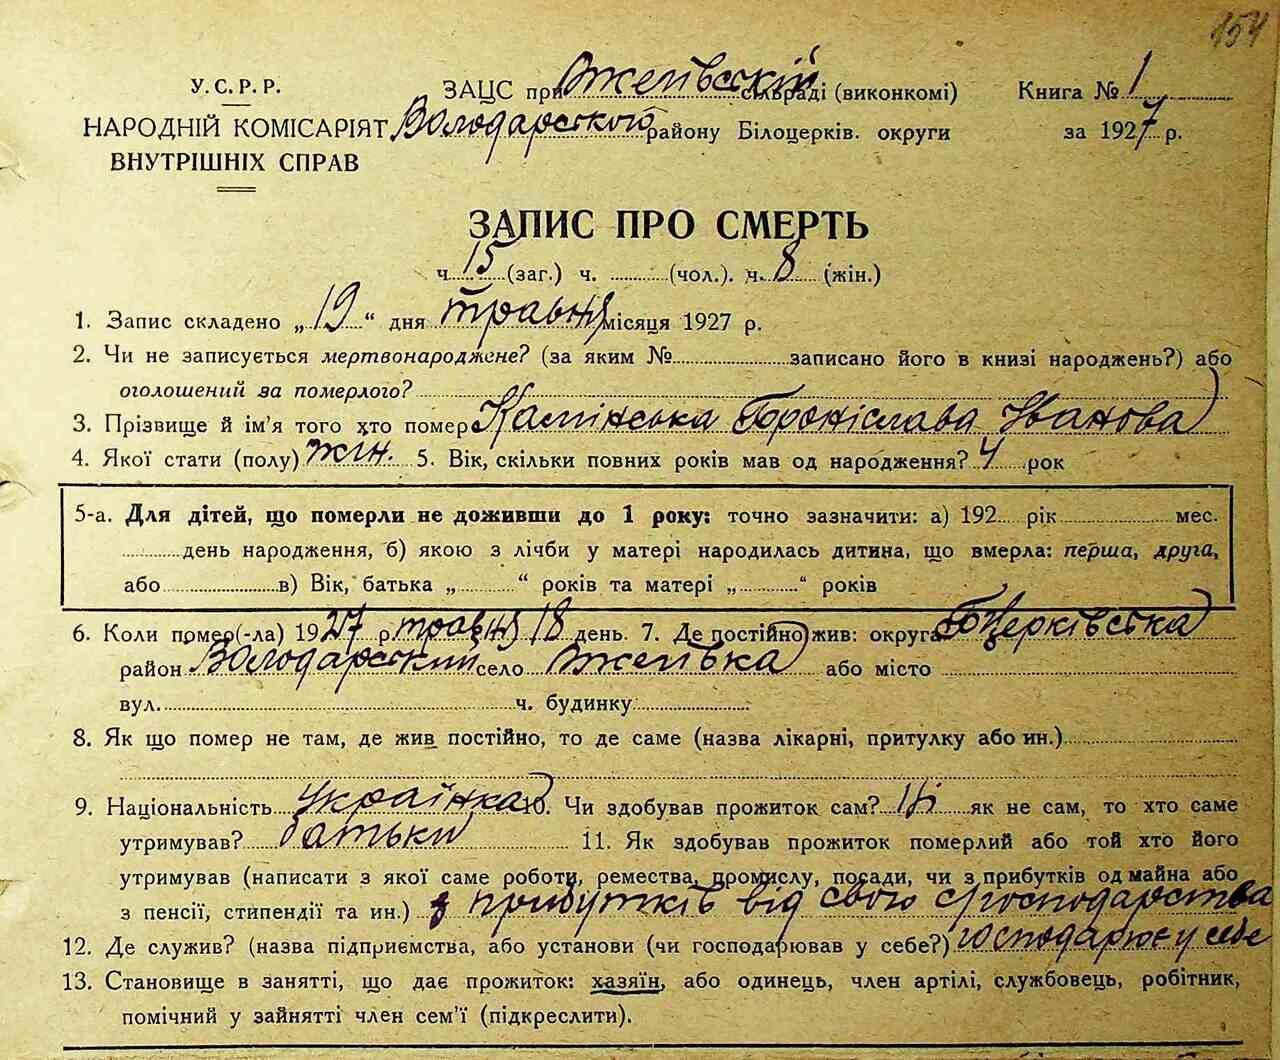 154
У.С.Р.Р.
ЗАЦС при Ожеївській сільраді (виконкомі) Книга № 1
НАРОДНІЙ КОМІСАРІЯТ Володарського району Білоцерків. округи за 1927 р.
ВНУТРІШНІХ СПРАВ
ЗАПИС ПРО СМЕРТЬ
ч. 15 (заг.) ч. (чол.). ч. 8 (жін.)
1. Запис складено „19“ дня травня місяця 1927 р.
2. Чи не записується мертвонароджене? (за яким № записано його в книзі народжень?) або
оголошений за померлого?
3. Прізвище й ім'я того хто помер Камінська Броніслава Іванова
4. Якої стати (полу) жін. 5. Вік, скільки повних років мав од народження? 4 рок
5-а. Для дітей, що померли не доживши до 1 року: точно зазначити: а) 192 рік мес.
день народження, б) якою з лічби у матері народилась дитина, що вмерла: перша, друга,
або в) Вік, батька „ “ років та матері „ “ років
6. Коли помер(-ла) 1927 р. травня 18 день. 7. Де постійно жив: округа Б Церківська
район Володарський село Ожеївка або місто
вул. ч. будинку
8. Як що помер не там, де жив постійно, то де саме (назва лікарні, притулку або ин.)
9. Національність українка 10. Чи здобував прожиток сам? ні як не сам, то хто саме
утримував? батьки 11. Як здобував прожиток померлий або той хто його
утримував (написати з якої саме роботи, ремества, промислу, посади, чи з прибутків од майна або
з пенсії, стипендії та ин.) з прибутків від свого с/господарства
12. Де служив? (назва підприємства, або установи (чи господарював у себе?) господарює у себе
13. Становище в занятті, що дає прожиток: хазяїн, або одинець, член артілі, службовець, робітник,
помічний у зайнятті член сем'ї (підкреслити).